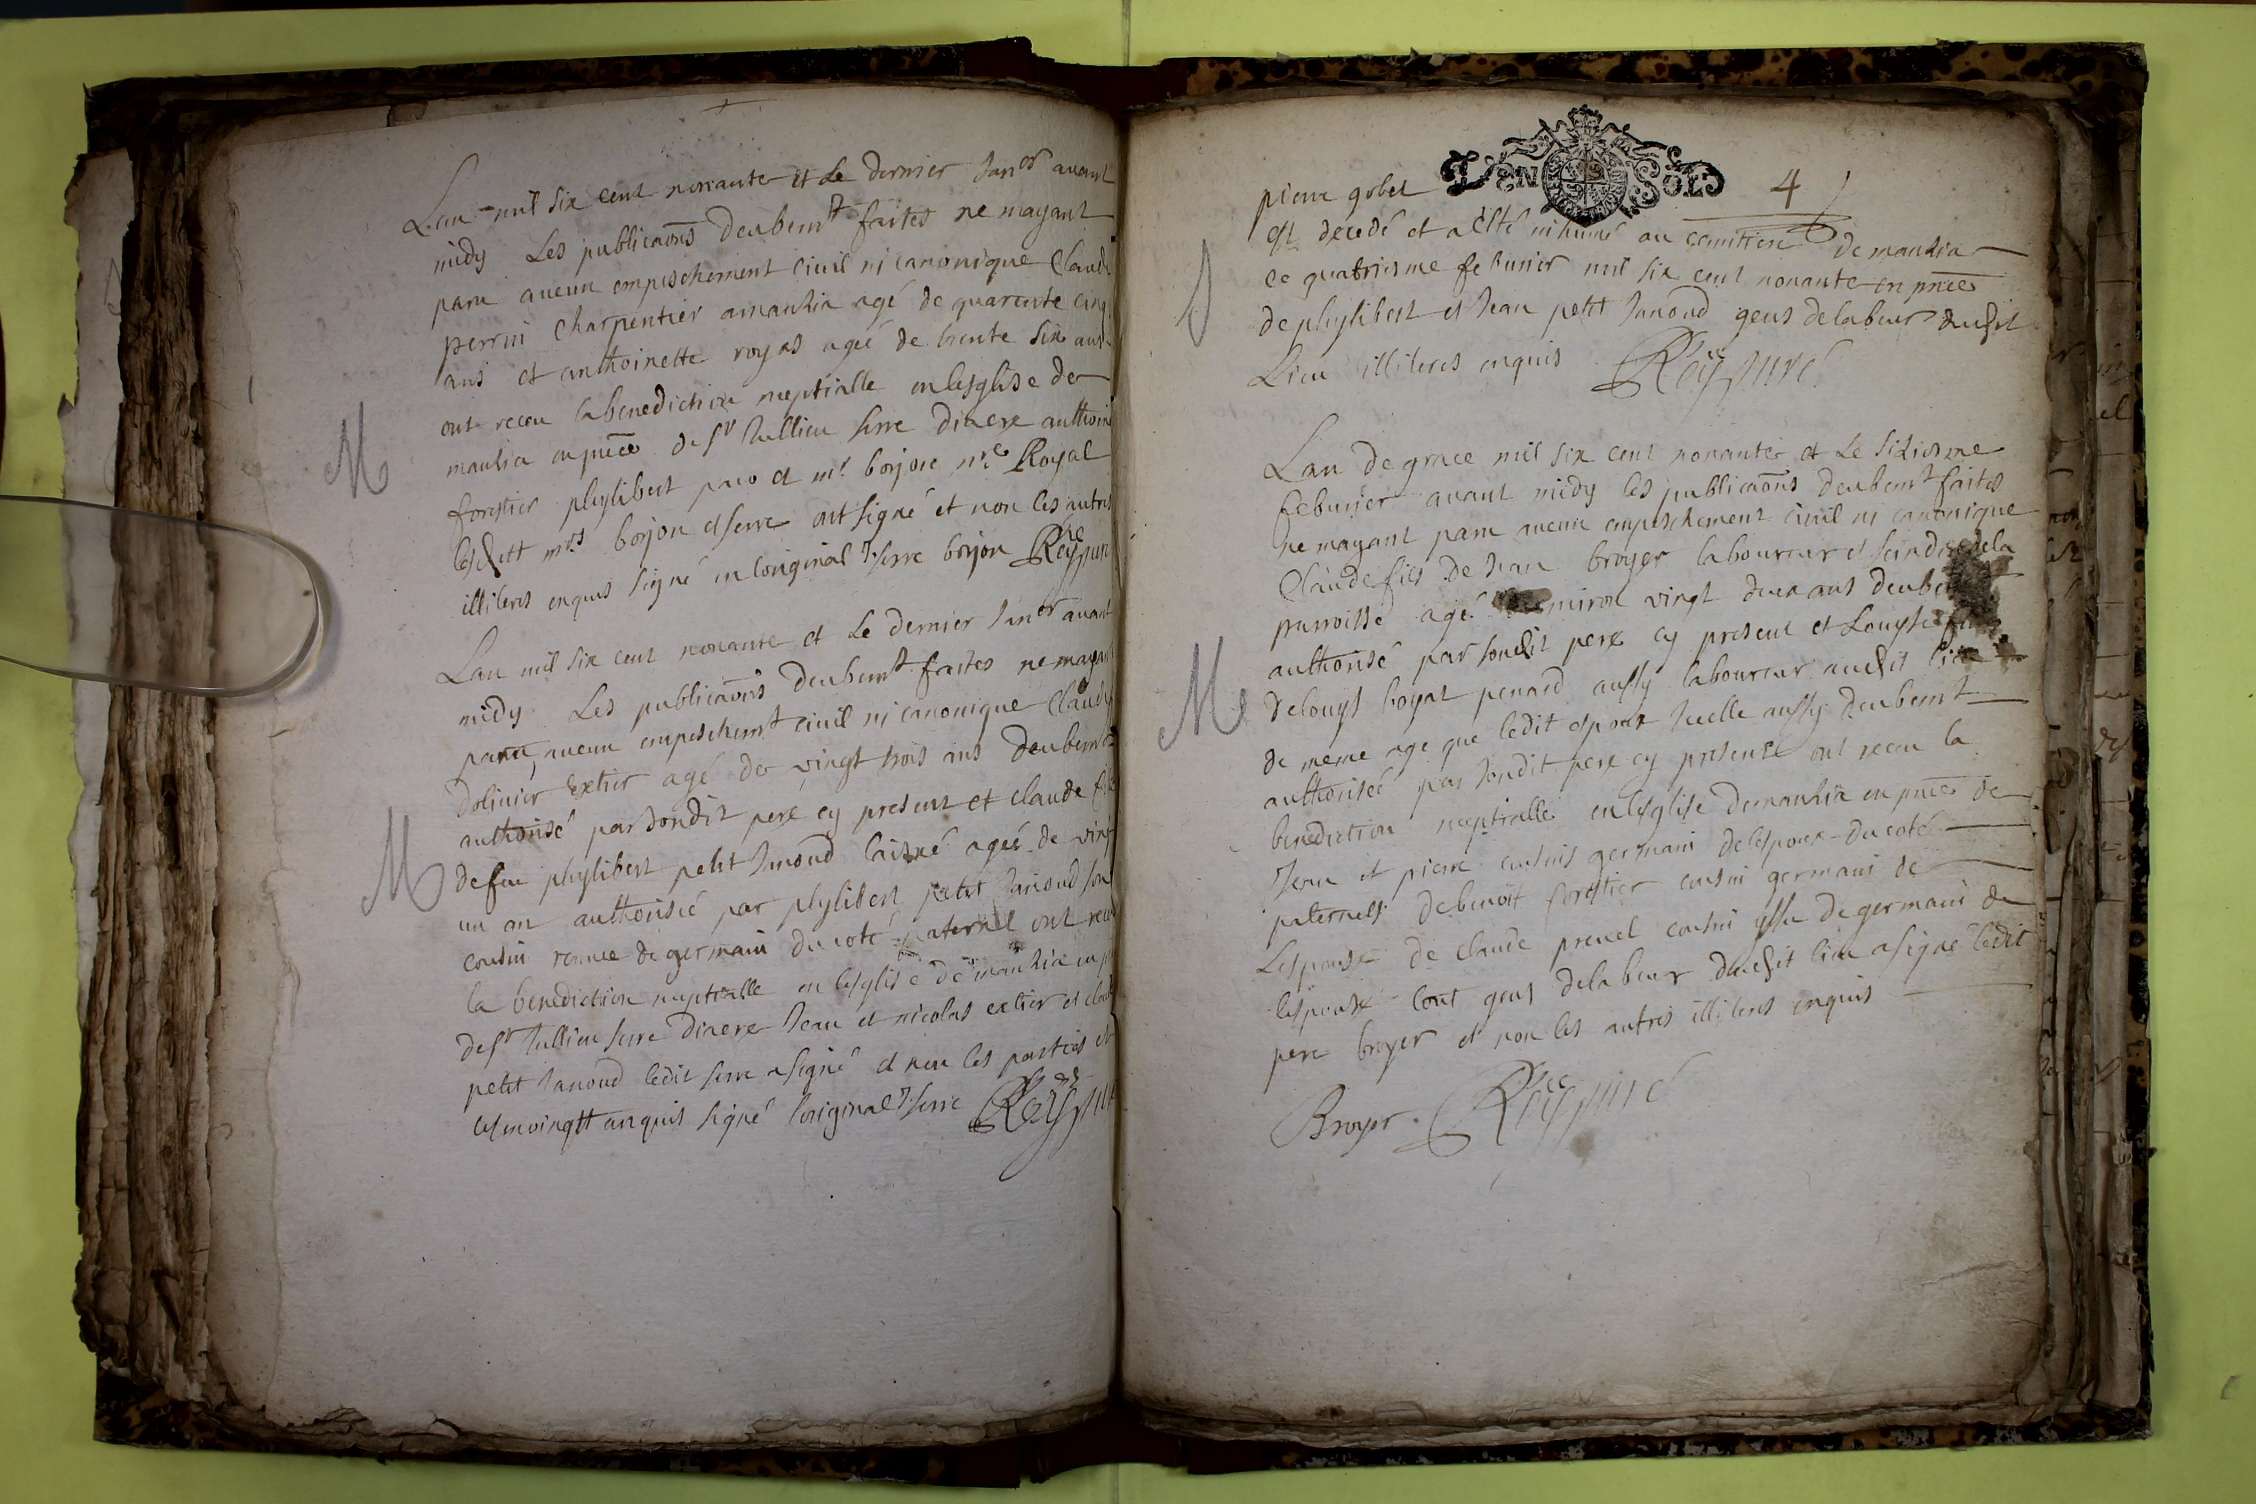 M
Lan mil six cent nonante et Le dernier Janer auant
midy Les publicaons deubemt faites ne mayant
paru aucun empeschement ciuil ni canonique Claude
perrin charpentier amanzia agé de quarente cinq
ans et anthoinette royas agee de trente six ans
ont receu la benediction nuptialle en lesglise de
manzia en pnce de sr Jullien serre diacre anthoine
forestier phylibert et mr borjon Royal
lesdt borjon et serre ont signé et non les autres
illiteres enquis signé en loriginal J. serre borjon Reÿ
M
Lan mil six cent nonante et Le dernier Janer auant
midy Les publicaons deubemt faites ne mayant
paru aucun empeschemt ciuil ni canonique Claude
dolinier extier agé de vingt trois ans deubemt
authorisé par sondit pere cy present et claude
defeu phylibert petit Janoud laisné agée de vingt
un an authorisée par phylibert petit Janoud son
cousin remue de germain du coté paternel ont receu
la benediction nuptialle en lesglise de manzia en
de sr Jullien serre diacre Jean et nicolas extier et claude
petit Janoud ledit serre a signé et non les parties et
tesmoingtt enquis signé loriginal J. serre Reÿ
LEN SOL
4
pierre gobet
est decedé et a esté inhumé au cemitiere de manzia
ce quatriesme feburier mil six cent nonante en pnce
de phylibert et Jean petit Janoud gens delabeur dudit
Lieu illiteres enquis Reÿ curé
M
Lan de grace mil six cent nonante et Le sixiesme
feburier auant midy les publicaons deubemt faites
ne mayant paru aucun empeschement ciuil ni canonique
Claude fils de Jean broyer laboureur et scindic dela
parroisse agé enuiron vingt deux ans
authorisé par sondit pere cy present et Louyse
de louys boyat penard aussy laboureur audit lieu
de meme age que ledit espoux Icelle aussy deubemt
authorisée par sondit pere cy present ont receu la
benediction nuptialle en lesglise demanzia en pnce de
Jean et pierre cousins germain de lespoux du coté
paternelf de benoit forestier cousin germain de
Lespouse de claude preuel cousin yssu de germain de
lespouse tout gens delabeur dudit lieu a signé ledit
pere broyer et non les autres illiteres enquis
Broyer. Reÿ curé